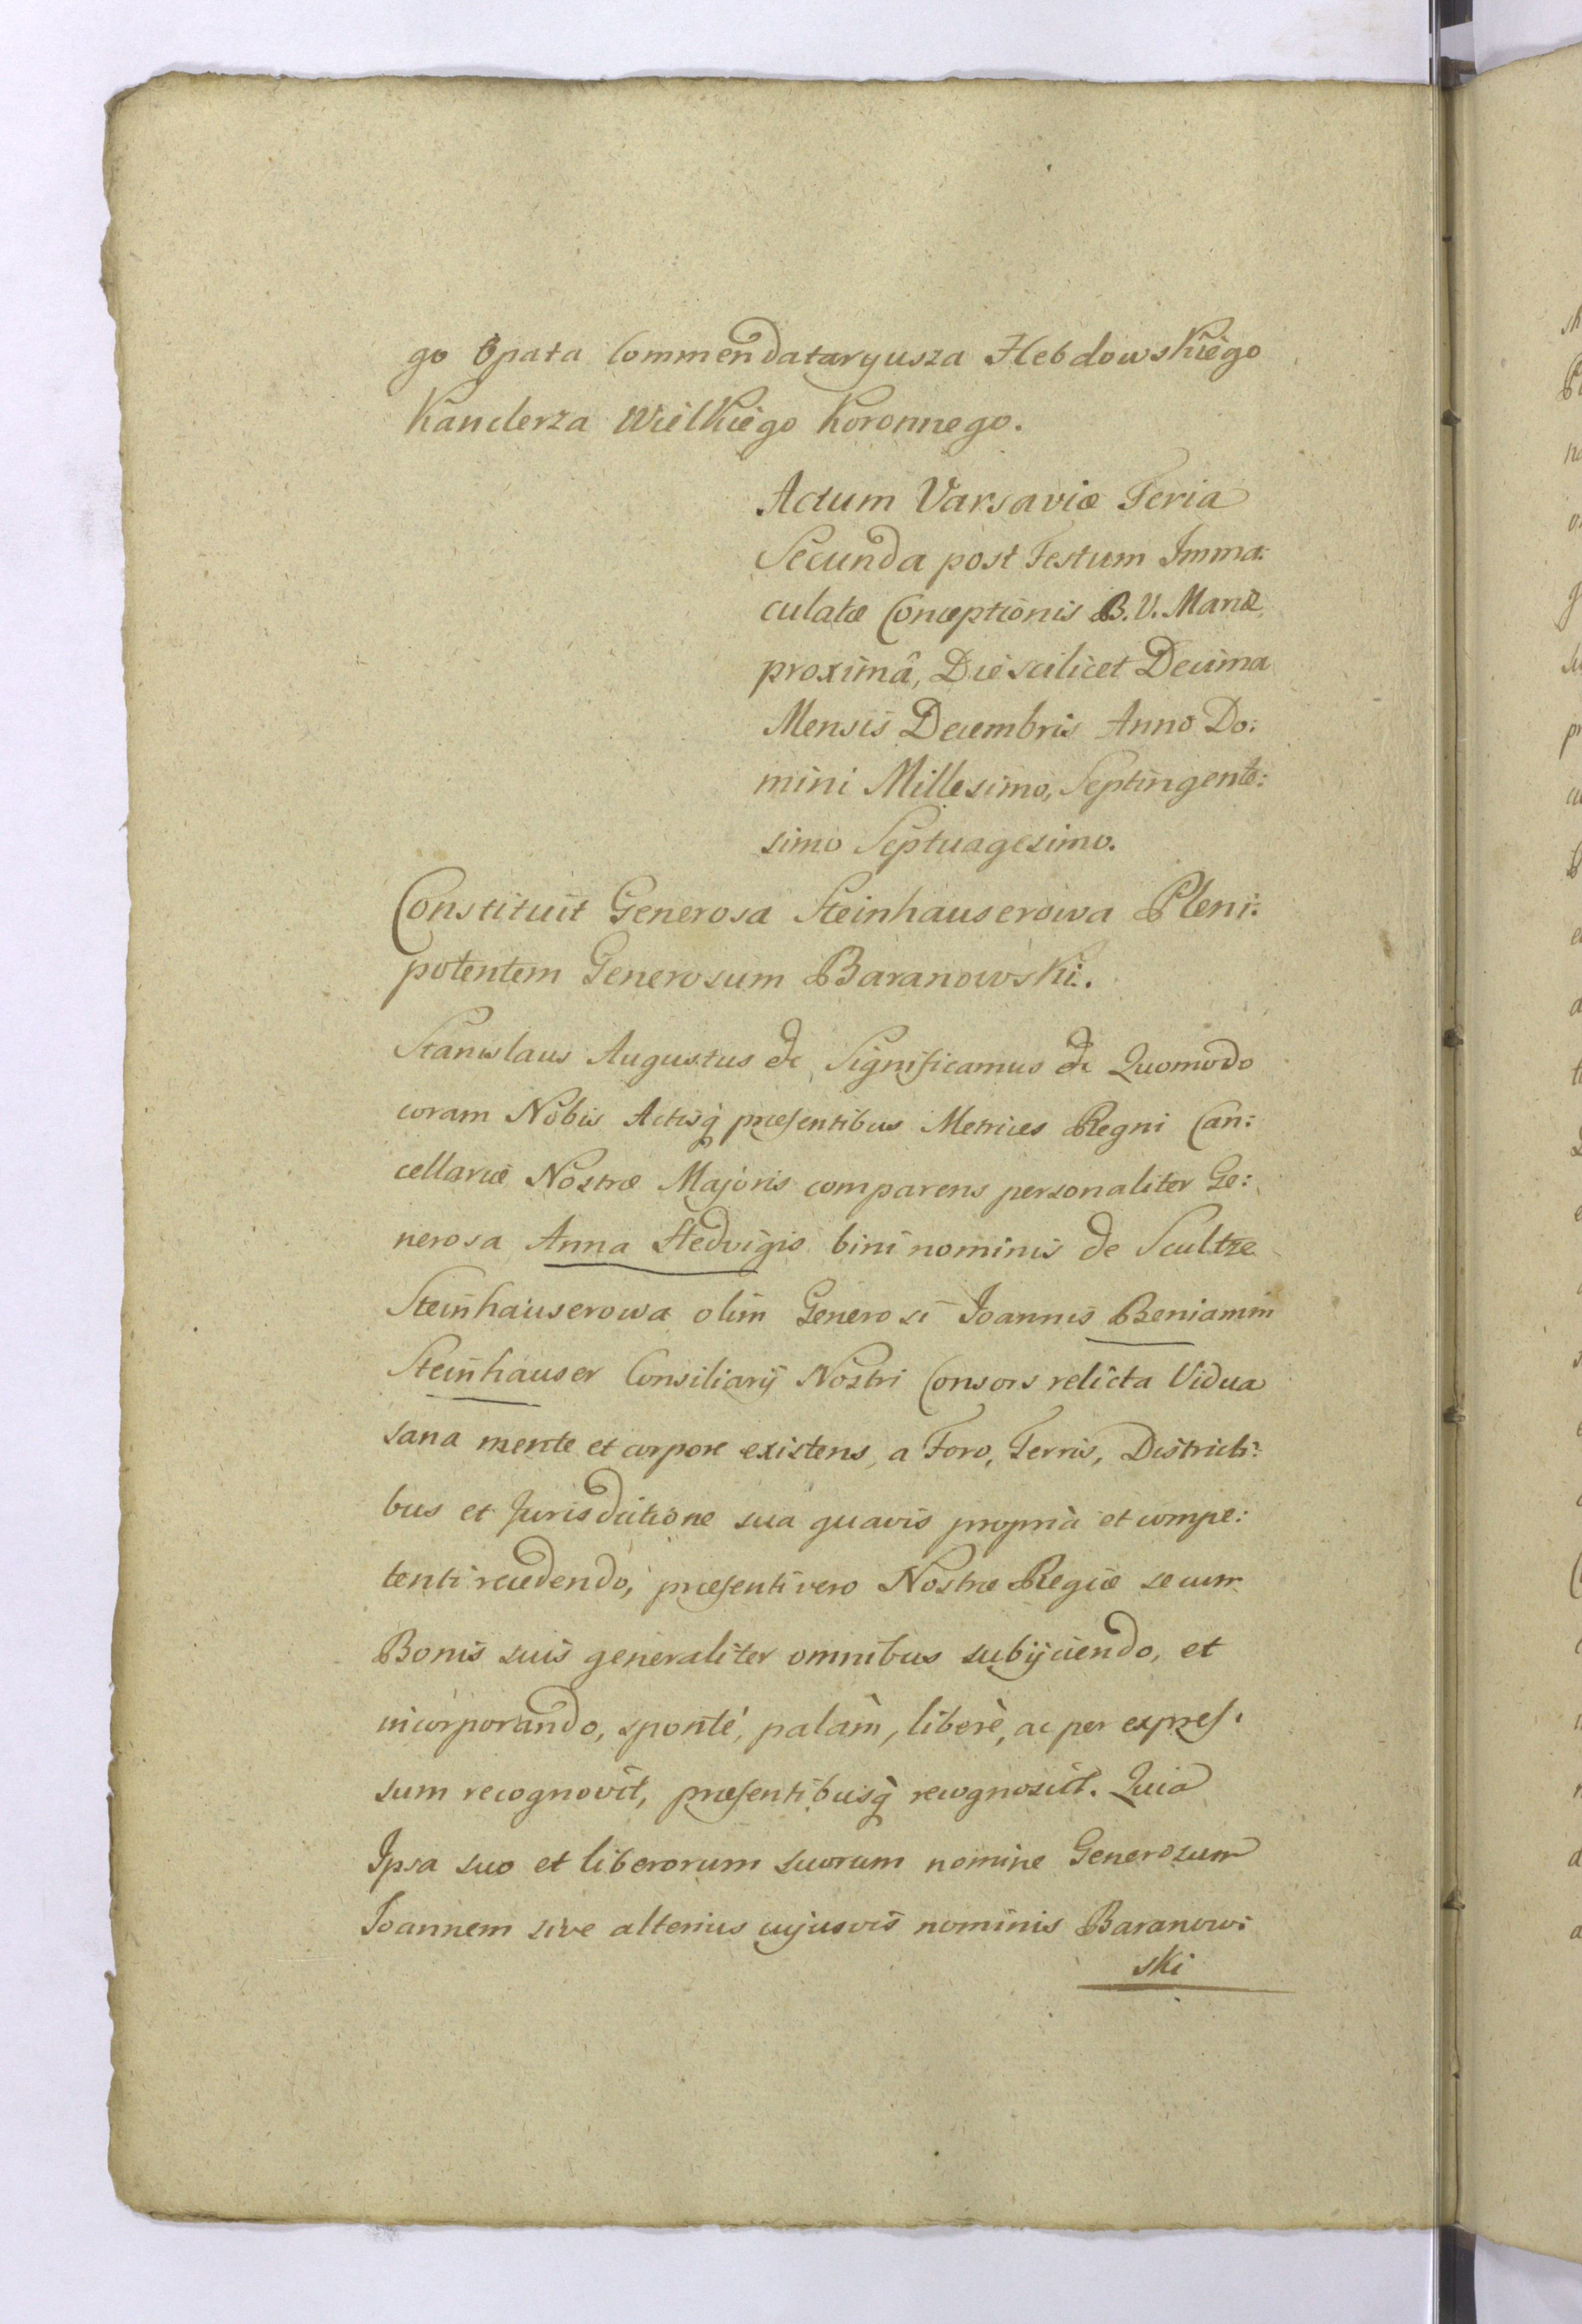 go Opata Commendataryusza Hebdowskiego
Kanclerza Wielkiego Koronnego.
Actum Varsaviæ Feria
Secunda post Festum Imma:
culatæ Conceptionis B. V. Mariæ
proximâ, Die scilicet Decima
Mensis Decembris Anno Do:
mini Millesimo, Septingente:
simo Septuagesimo.
Constituit Generosa Steinhauserowa Pleni:
potentem Generosum Baranowski.
Stanislaus Augustus &c Significamus &c Quomodo
coram Nobis Actisq præsentibus Metrices Regni Can:
cellariæ Nostræ Majoris comparens personaliter Ge:
nerosa Anna Hedvigis bini nominis de Scultze
Steinhauserowa olim Generosi Joannis Beniamin
Steinhauser Consiliarij Nostri Consors relicta Vidua
sana mente et corpore existens, a Foro, Terris, Districti:
bus et Jurisdictione sua quavis propria et compe:
tenti recedendo, præsenti vero Nostræ Regiæ se cum
Bonis suis generaliter omnibus subijciendo, et
incorporando, sponte, palàm, liberè, ac per expres:
sum recognovit, præsentibusq recognoscit. Quia
Ipsa suo et liberorum suorum nomine Generosum
Joannem sive alterius cujusvis nominis Baranow:
ski